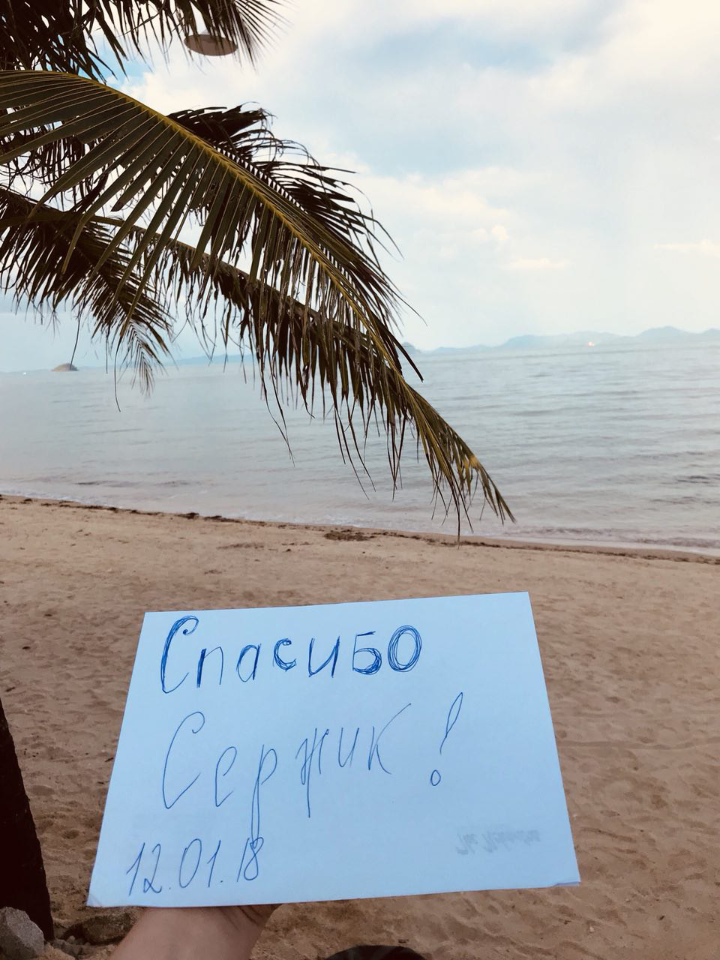 Спасибо
Сержик!
12.01.18